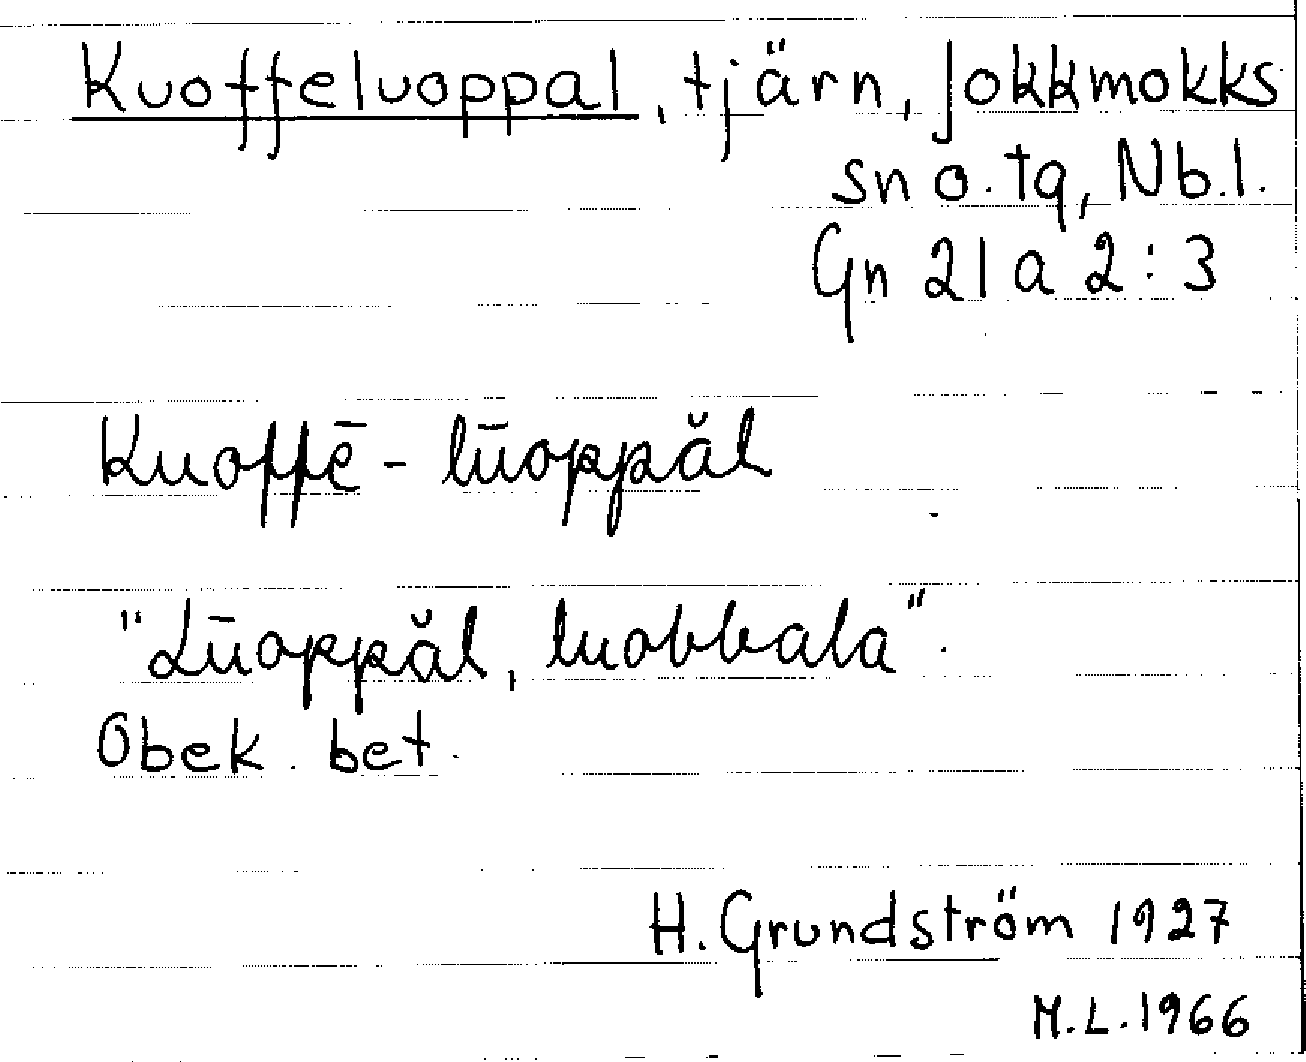 Kuoffeluoppal, tjärn, Jokkmokks
sn o. tg, Nb.l.
Gn 21 a 2:3
Kuoffē - lūoppăl
"Lūoppăl, luobbala".
Obek. bet.
H. Grundström 1927
M.L. 1966